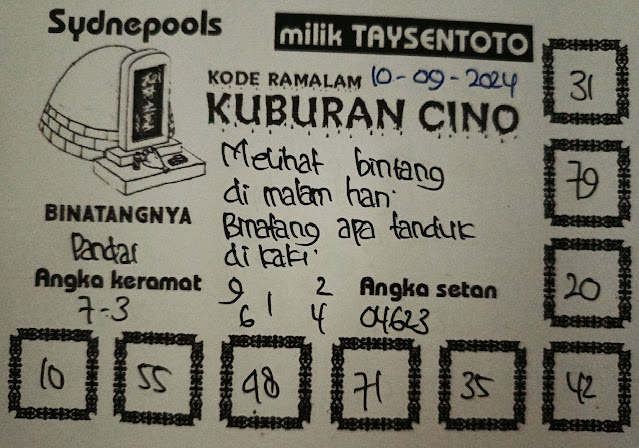 Sydnepools
milik TAYSENTOTO
KODE RAMALAM 10-09-2024
KUBURAN CINO
Melihat bintang
di malam hari.
Binatang apa tanduk
di kaki.
BINATANGNYA
Angka keramat
7-3
9 2
1
6 4
Angka setan
04623
31
79
20
10 55 48 71 35 42